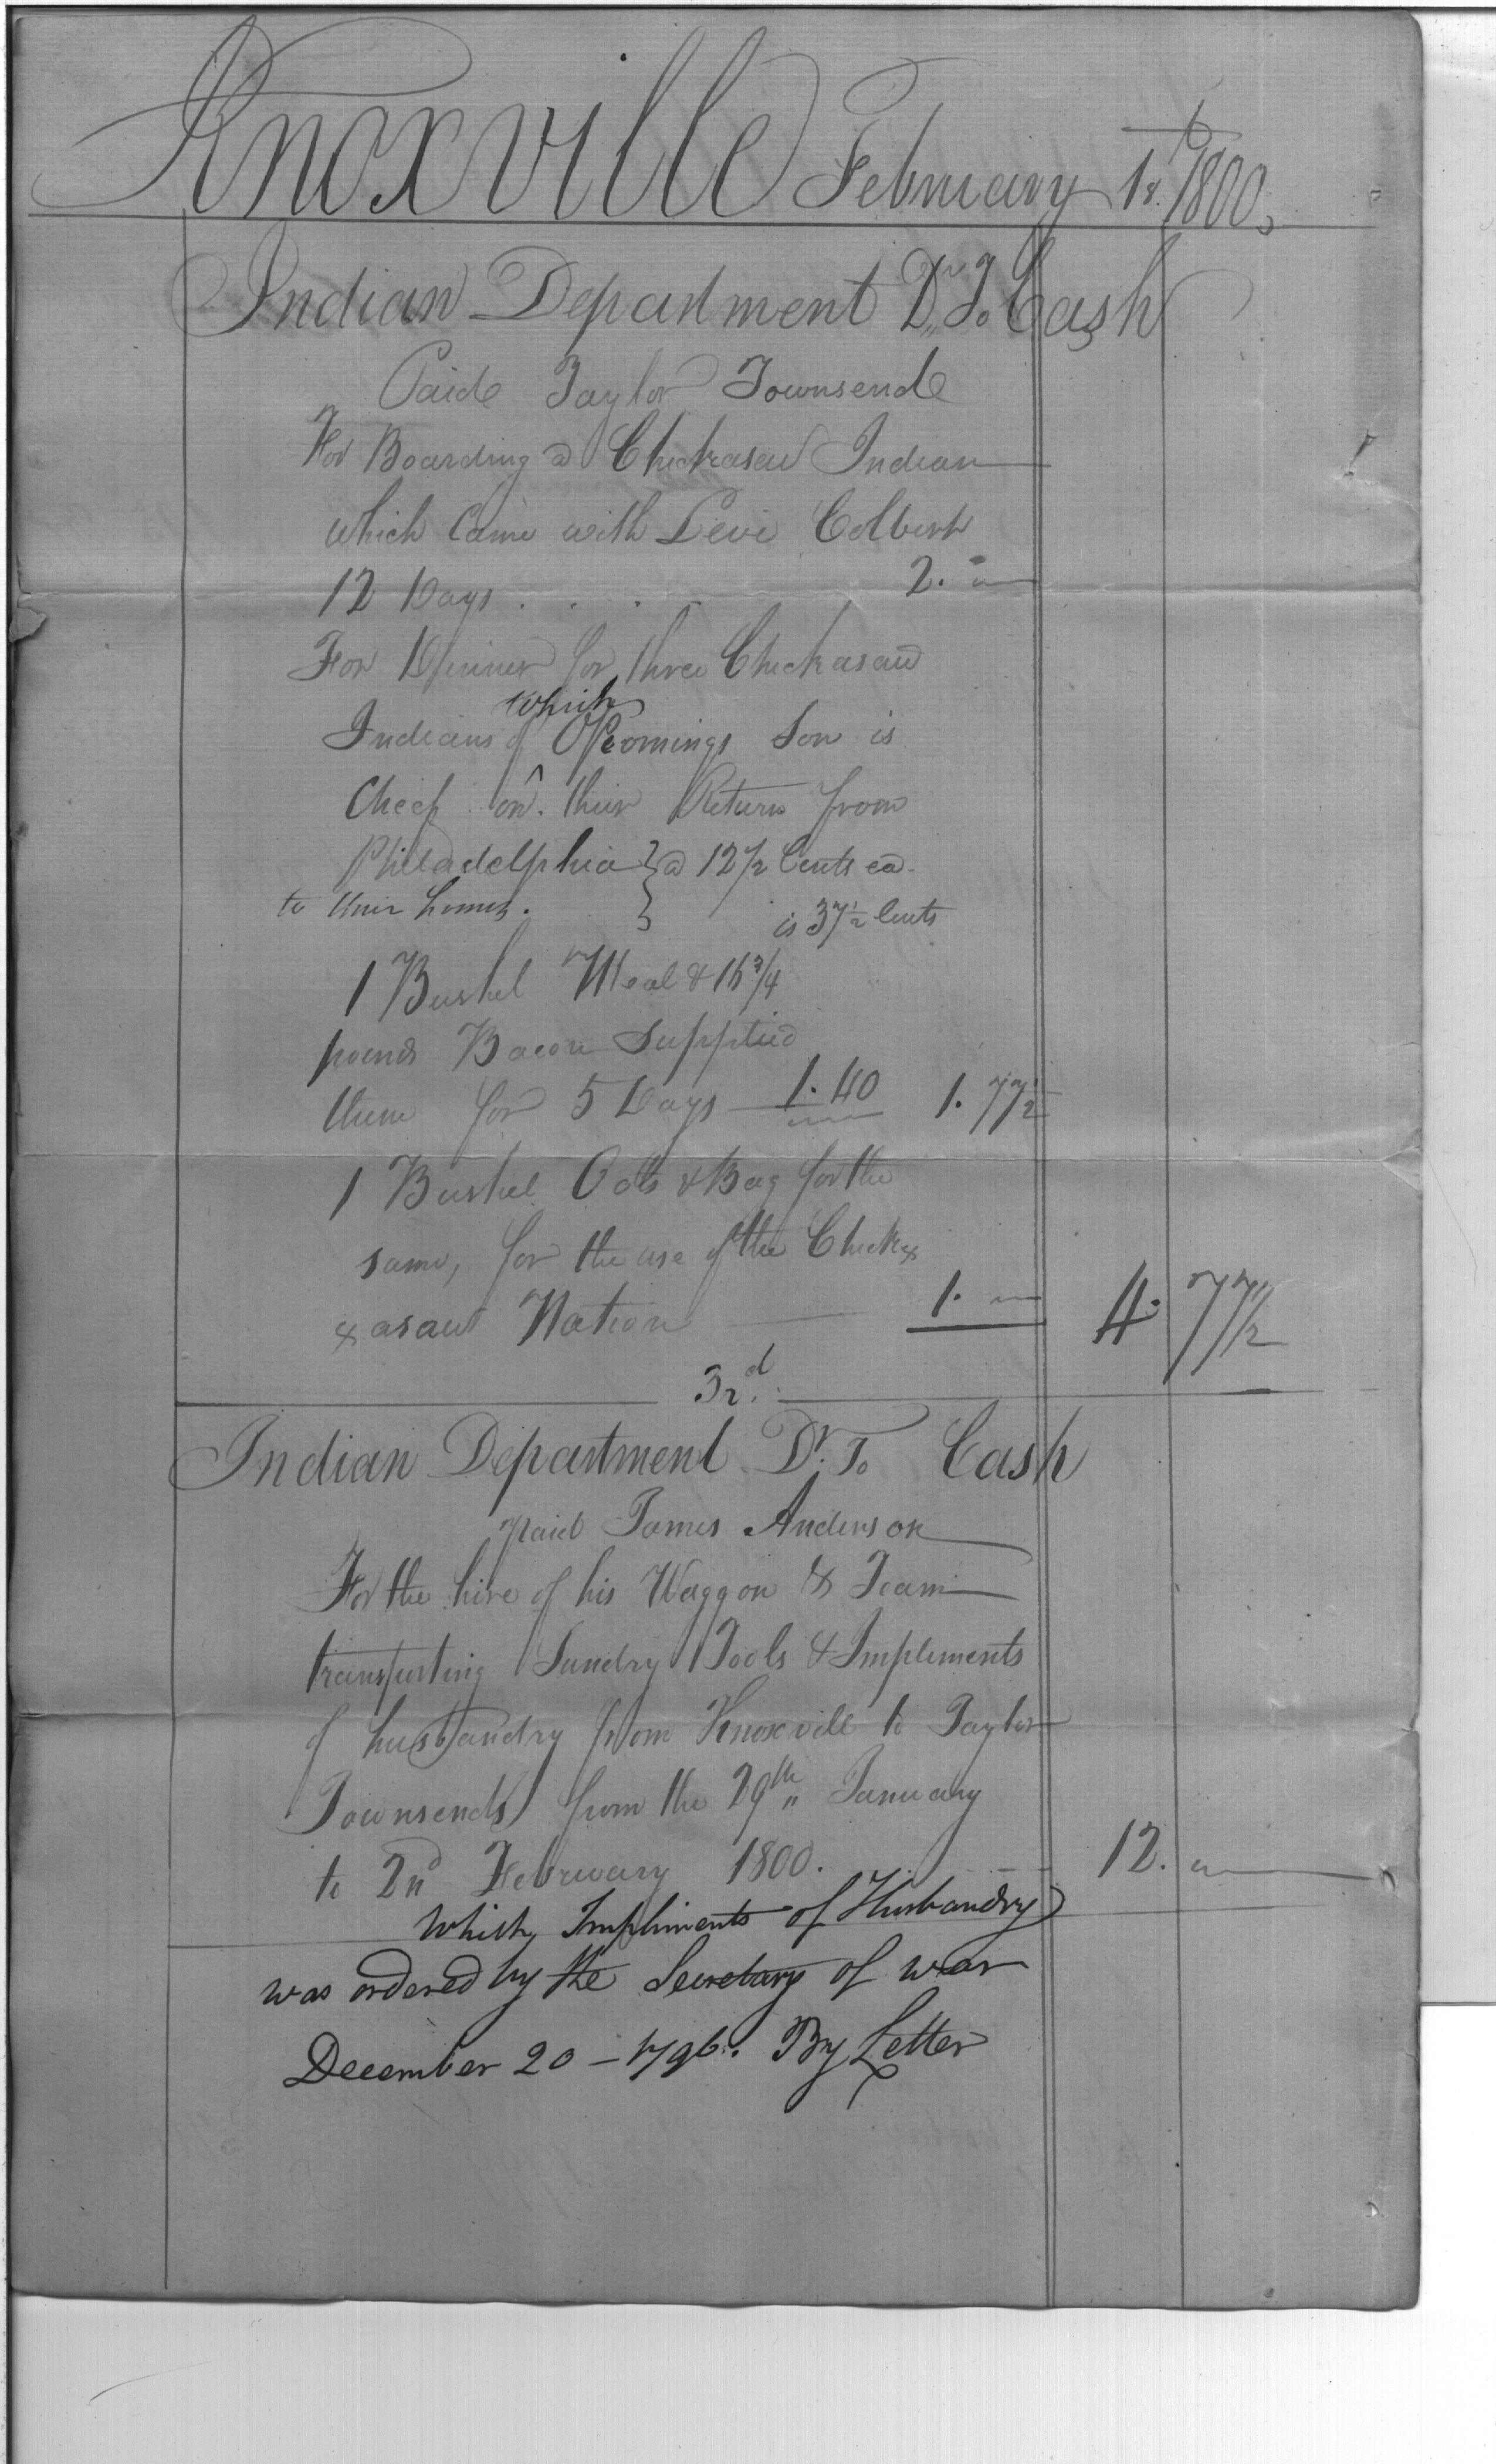 Knoxville February 1st 1800.
Indian Department Dr To Cash
Paid Taylor Townsend
For Boarding a Chickasaw Indian
which Came with Levi Colbert
12 Days . . . . 2. "
For Dinner for three Chickasaw
which
Indians of Opiomings Son is
Cheef on. their Return from
Philladelphia } @ 12 1/2 Cents ea.
to their homes. } is 37 1/2 Cents
1 Bushel Meal & 16 3/4
pounds Bacon Supplied
them for 5 Days 1.40 1. 77 1/2
1 Bushel Oats & Bag for the
same, for the use of the Chick x
x asaw Nation 1. " 4. 77 1/2
3rd.
Indian Department Dr. To Cash
paid James Anderson
For the hire of his Waggon & Team
transporting Sundry Tools & Impliments
of husbandry from Knoxville to Taylor
Townsends from the 29th January
to 2nd February 1800. 12. "
which Impliments of Husbandry
was ordered by the Secretary of war
December 20 - 1796. By Letter